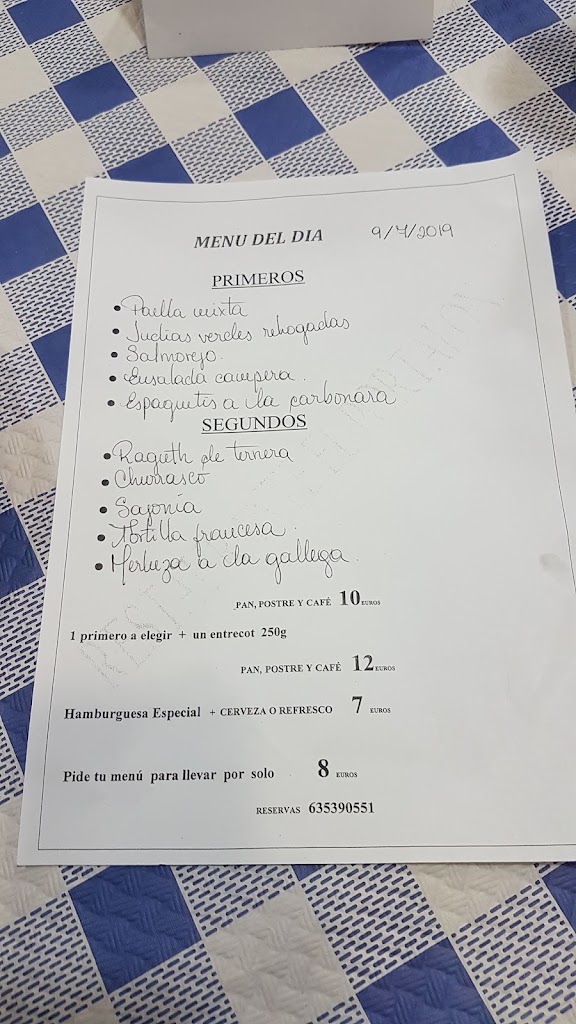 MENU DEL DIA 9/7/2019
PRIMEROS
• Paella mixta
• Judias verdes rehogadas
• Salmorejo.
• Ensalada campera.
• Espaguetis a la carbonara
SEGUNDOS
• Ragueth de ternera
• Churrasco
• Sajonia
• Tortilla francesa.
• Merluza a la gallega.
PAN, POSTRE Y CAFÉ 10 EUROS
1 primero a elegir + un entrecot 250g
PAN, POSTRE Y CAFÉ 12 EUROS
Hamburguesa Especial + CERVEZA O REFRESCO 7 EUROS
Pide tu menú para llevar por solo 8 EUROS
RESERVAS 635390551